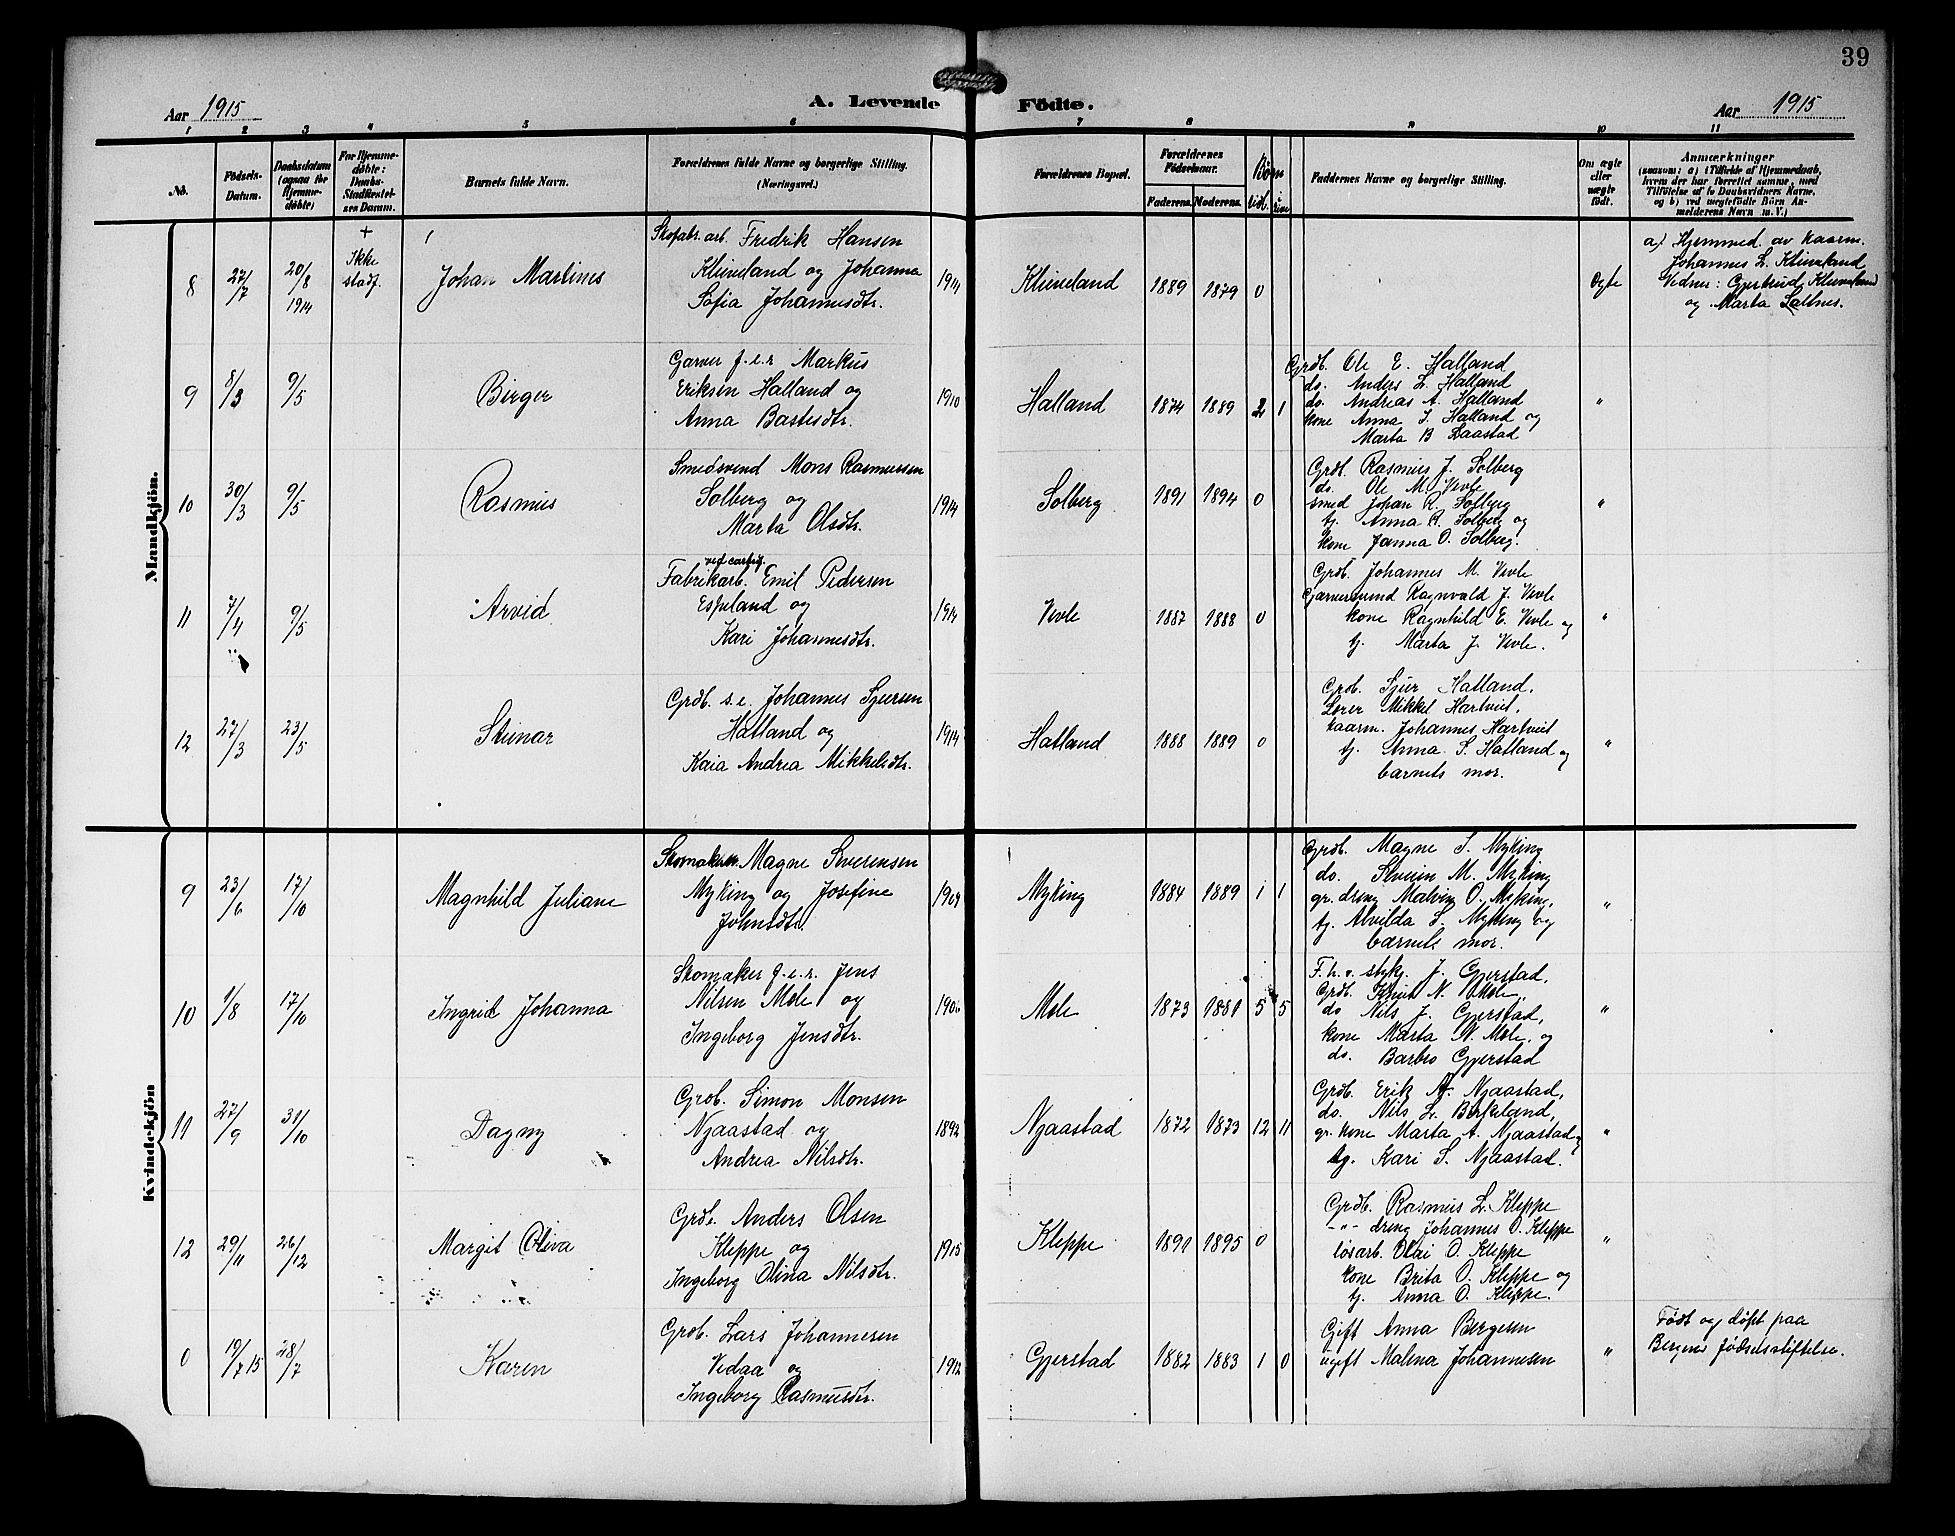 39
Aar 1915
A. Levende Födte.
Aar 1915
1 2 3 4 5 6 7 8 9 10 11
No.
Födsels-
Datum.
Daabsdatum
(ogsaa for
Hjemme-
döbte)
For Hjemme-
döbte:
Daabs-
Stadfæstel-
ses Datum.
Barnets fulde Navn.
Forældrenes fulde Navne og borgerlige Stilling.
(Næringsvei.)
Forældrenes Bopæl.
Forældrenes
Födselsaar.
Faderens. Moderens.
Börn
Faddernes Navne og borgerlige Stilling.
Om ægte
eller
uægte
födt.
Anmærkninger
(saasom: a) i Tilfælde af Hjemmedaab,
hvem der har forrettet samme, med
Tilföielse af to Daabsvidners Navne,
og b) ved uægtefödte Börn An-
melderens Navn m. V.)
Mandkjön.
8
27/7
20/8
1914
+
Ikke
stadf.
Johan Martinus
Skofabr. arb. Fredrik Hansen
Kleiveland og Johanna
Sofia Johannesdtr.
1914
Kleiveland
1889 1879 0
Ægte
a) Hjemmed. av kaarm.
Johannes L. Kleiveland
Vidner: Gjertrud Kleiveland
og Marta Saltnes.
9
8/3
9/5
Birger
Garver g.e.r Markus
Eriksen Halland og
Anna Bastesdtr.
1910
Halland
1874 1889 2 1
Grdb. Ole E. Halland
do. Anders L. Halland
do. Andreas A. Halland
kone Anna I. Halland og
Marta B. Daastad
"
10
30/3
9/5
Rasmus
Smedsvend Mons Rasmussen
Solberg og
Marta Olsdtr.
1914
Solberg
1891 1894 0
Grdb. Rasmus J. Solberg
do. Ole M. Vevle
smed Johan R. Solberg
tj. Anna R. Solberg og
kone Janna O. Solberg.
"
11
7/4
9/5
Arvid
Fabrikarb. Emil Pedersen
Espeland og
Kari Johannesdtr.
1914
Vevle
1887 1888 0
Grdb. Johannes M. Vevle
Garversvend Ragnvald J. Vevle
kone Ragnhild E. Vevle og
tj. Marta J. Vevle.
"
12
27/3
23/5
Steinar
Grdb. s.e. Johannes Sjursen
Hatland og
Kaia Andrea Mikkelsdtr.
1914
Hatland
1888 1889 0
Grdb. Sjur Hatland,
Lærer Mikkel Hartveit,
kaarm. Johannes Hartveit
tj. Anna S. Hatland og
barnets mor.
"
Kvindekjön
9
23/6
17/10
Magnhild Juliane
Skomaker Magne Severinsen
Myking og Josefine
Johnsdtr.
1909
Myking
1884 1889 1 1
Grdb. Magne S. Myking
do. Severin M. Myking
gr.dreng Malvin O. Myking,
tj. Alvilda S. Myking og
barnets mor.
"
10
1/8
17/10
Ingrid Johanna
Skomaker g.e.r. Jens
Nilsen Mole og
Ingeborg Jensdtr.
1906
Mole
1873 1881 5 5
F.h.v. stykj. J. Gjerstad,
Grdb. Knut N. Mole,
do Nils J. Gjerstad,
kone Marta N. Mole, og
do. Barbro Gjerstad
"
11
27/9
31/10
Dagny
Grdb. Simon Monsen
Njaastad og
Andrea Nilsdtr.
1892
Njaastad
1872 1873 12 11
Grdb. Erik A. Njaastad,
do. Nils L. Birkeland,
gr. kone Marta A. Njaastad og
tj. Kari S. Njaastad.
"
12
29/11
26/12
Margit Oliva
Grde. Anders Olsen
Kleppe og
Ingeborg Olina Nilsdtr.
1915
Kleppe
1891 1895 0
Grdb. Rasmus L. Kleppe
-"- dreng Johannes O. Kleppe
løsarb. Olai O. Kleppe
kone Brita O. Kleppe og
tj. Anna O. Kleppe.
"
0
19/7 15
28/7
Karen
Grdb. Lars Johannesen
Vedaa og
Ingeborg Rasmusdtr.
1912
Gjerstad
1882 1883 1 0
Gift Anna Bergesen
ugift Malena Johannesen
"
Født og døpt paa
Bergens fødselsstiftelse.